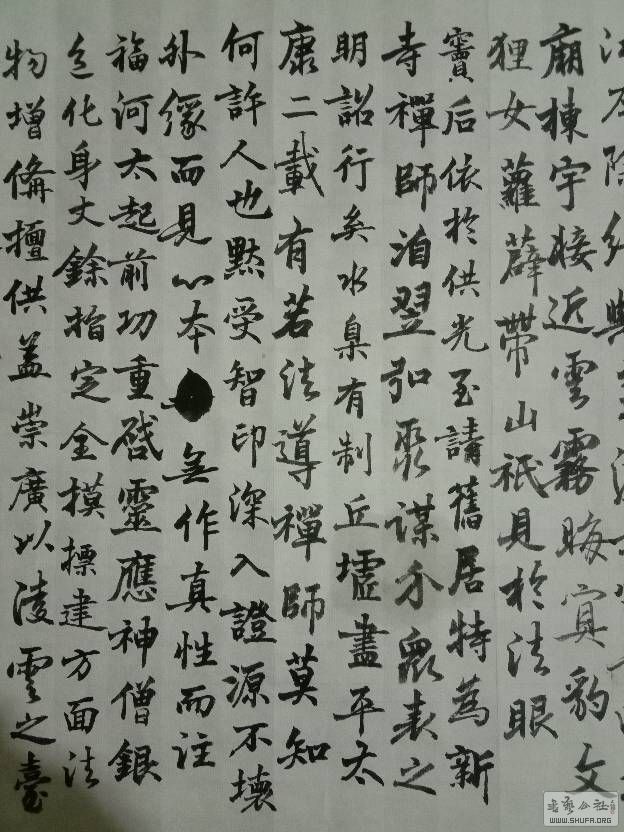 廟棟宇接近雲霧晦冥豹文
狸女蘿薜帶山祇見於法眼
竇后依於供光至請舊居特為新
寺禪師洎翌弘聚謀介衆表之
明詔行矣水臬有制丘墟盡平太
康二載有若法導禪師莫知
何許人也黙受智印深入證源不壞
外緣而見心本無作真性而注
福河太起前功重啓靈應神僧銀
色化身丈餘指定全摸標建方面法
物增備擅供盖崇廣以淩雲之臺
书艺公社
WWW.SHUFA.ORG